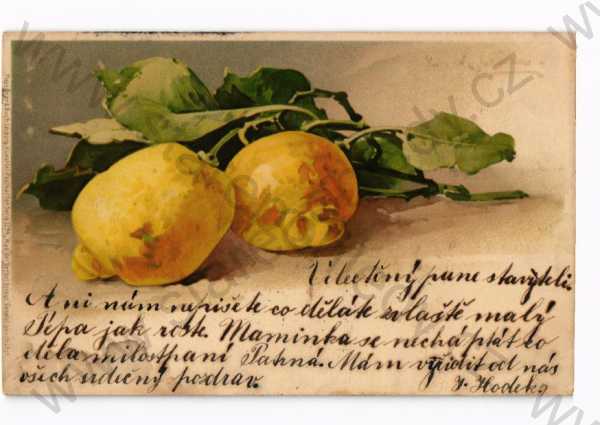 Vilectěný pane staviteli.
Ani nám nepíšete co děláte zvlaště malý
Pépa jak roste. Maminka se nechá ptát co
děla milostpaní Pahná. Mám vyřídit od nás
všech srdečný pozdrav.
J. Hodek